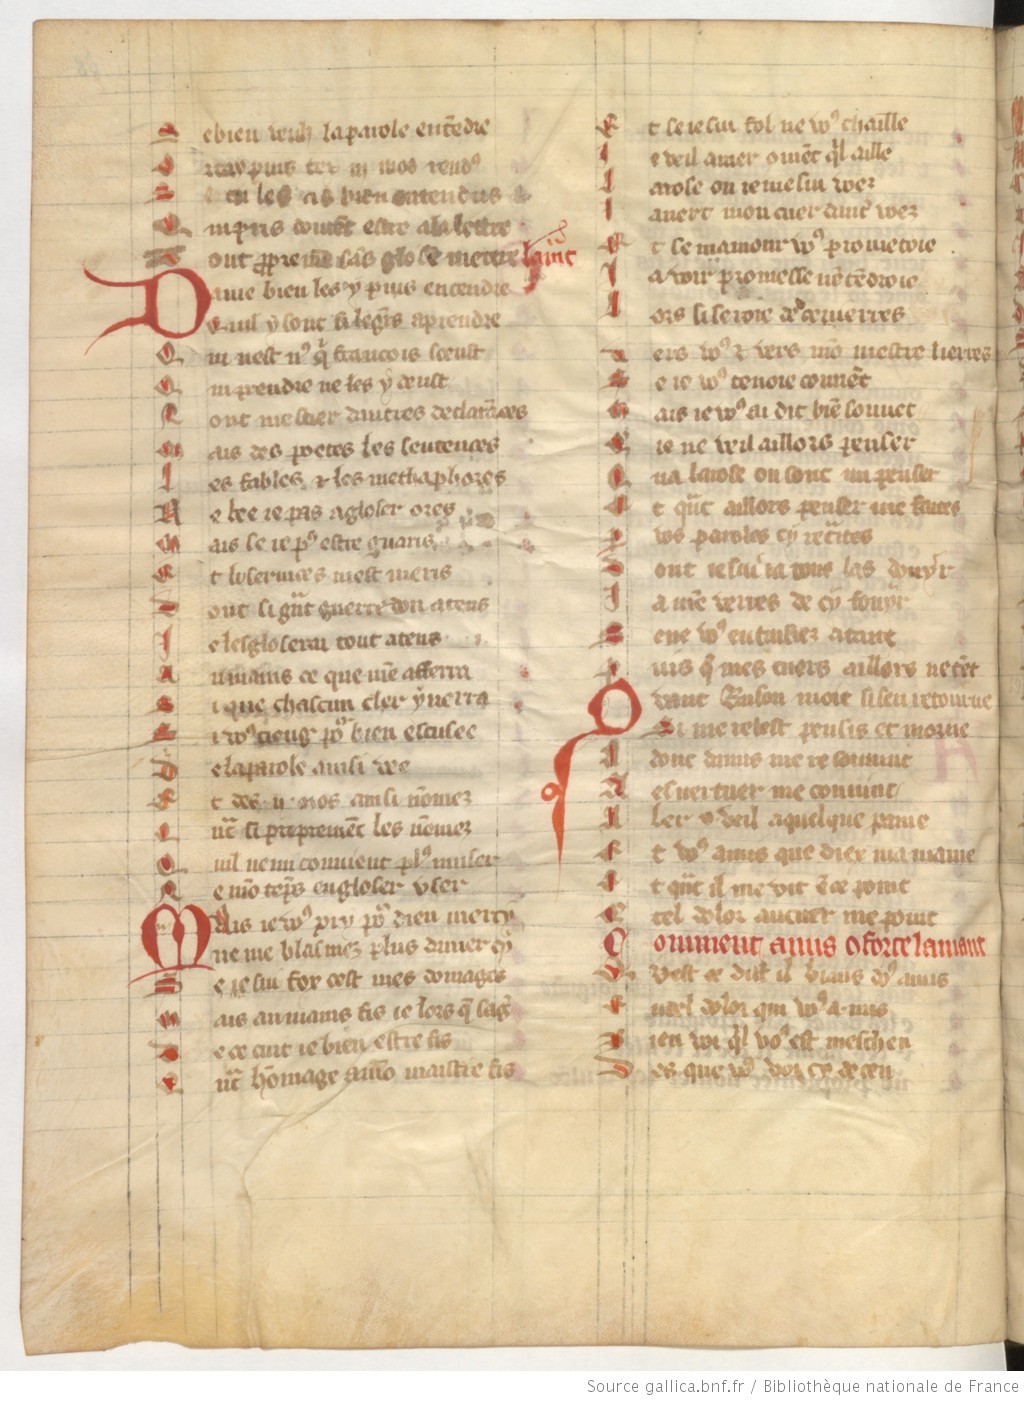 e bien veulz la parole entēdre
t puis ter in mos rendꝰ
cu les as bien entendus
n pris doiuēt estre a la lettre
out ꝓprem̄t sās glose mettre lam̄t
Dame bien les y puis entendre
Quil y sont si legr̄s a prendre
Q ui nest nꝰ q̄ francois sceust
Q ui prendre ne les y deust
N ont mestier dautres declarāces
M ais des poetes les sentences
L es fables ⁊ les methaphores
N e bee ie pas a gloser ores
M ais se ie pꝰ estre guaris
E t li seruices mest meris
D ont si gn̄t guerredon atens
I e les gloserai tout a tens
A u mains ce que mē afferra
S i que chascun cler y uerra
S i vꝰ tieng por bien escusee
D e la parole ainsi vsee
E t des .ii. mos ainsi nōmez
Q nt̄ si proprement les nōmez
Q uil ne mi conuient plꝰ muser
N e mō tēps en gloser vser
Mais ie vꝰ pry por dieu mercy
ne me blasmez plus damer cy
S e ie sui fox cest mes domages
M ais au mains fis ie lors q̄ sages
D e ce cuit ie bien estre fis
Q nt̄ hōmage a mō maistre fis
E t se ie sui fol ne vꝰ chaille
I e veil amer cōmēt ql̄ aille
L a rose ou ie me sui voez
I a uert mon cuer damē voez
E t se mamour vꝰ prometoie
I a voir promesse nētēdroie
L ors si seroie deceuierres
V ers vꝰ ⁊ vers mō mestre lierres
S e ie vꝰ tenoie couuēt
M ais ie vꝰ ai dit biē souuēt
Q ie ne veil aillors penser
Q ua la rose ou sont mi penser
E t qn̄t aillors penser me faites
P vos paroles cy retraites
D ont ie sui ia tous las douyr
I a mē verres de cy fouyr
S e ne vꝰ en taisiez a tant
P uis q̄ mes cuers aillors ne tēt
Quant Raison moit si sen retourne
Si me relest pensis et morne
A donc damis me resouuint
A esuertuer me conuint
A ler y veil a quelque paine
E t vꝰ amis que diex mamaine
E t qn̄t il me vit ē ce point
Q tel dolor au cuer me point
Comment amis oforte lamant
Quest ce dist il biaus dꝰ amis
Q uel dolor qui vꝰ a mis
B ien voi ql̄ voꝰ est mescheu
D es que vꝰ voi cy de ceu